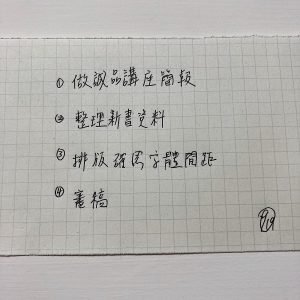 ① 做誠品講座簡報
② 整理新書資料
③ 排版 字體間距
④ 畫稿